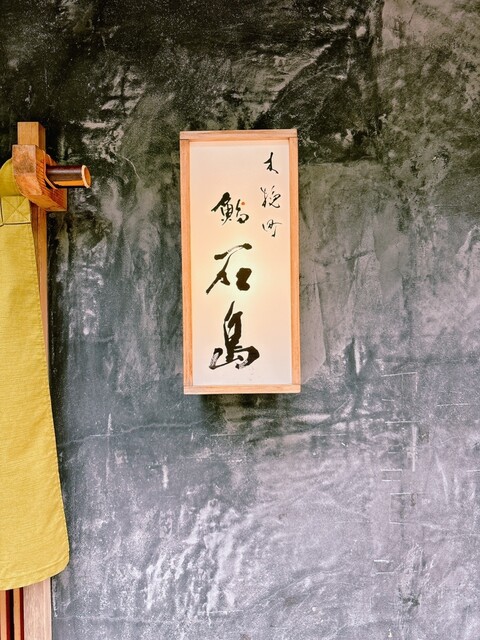 木挽町
鮨石島